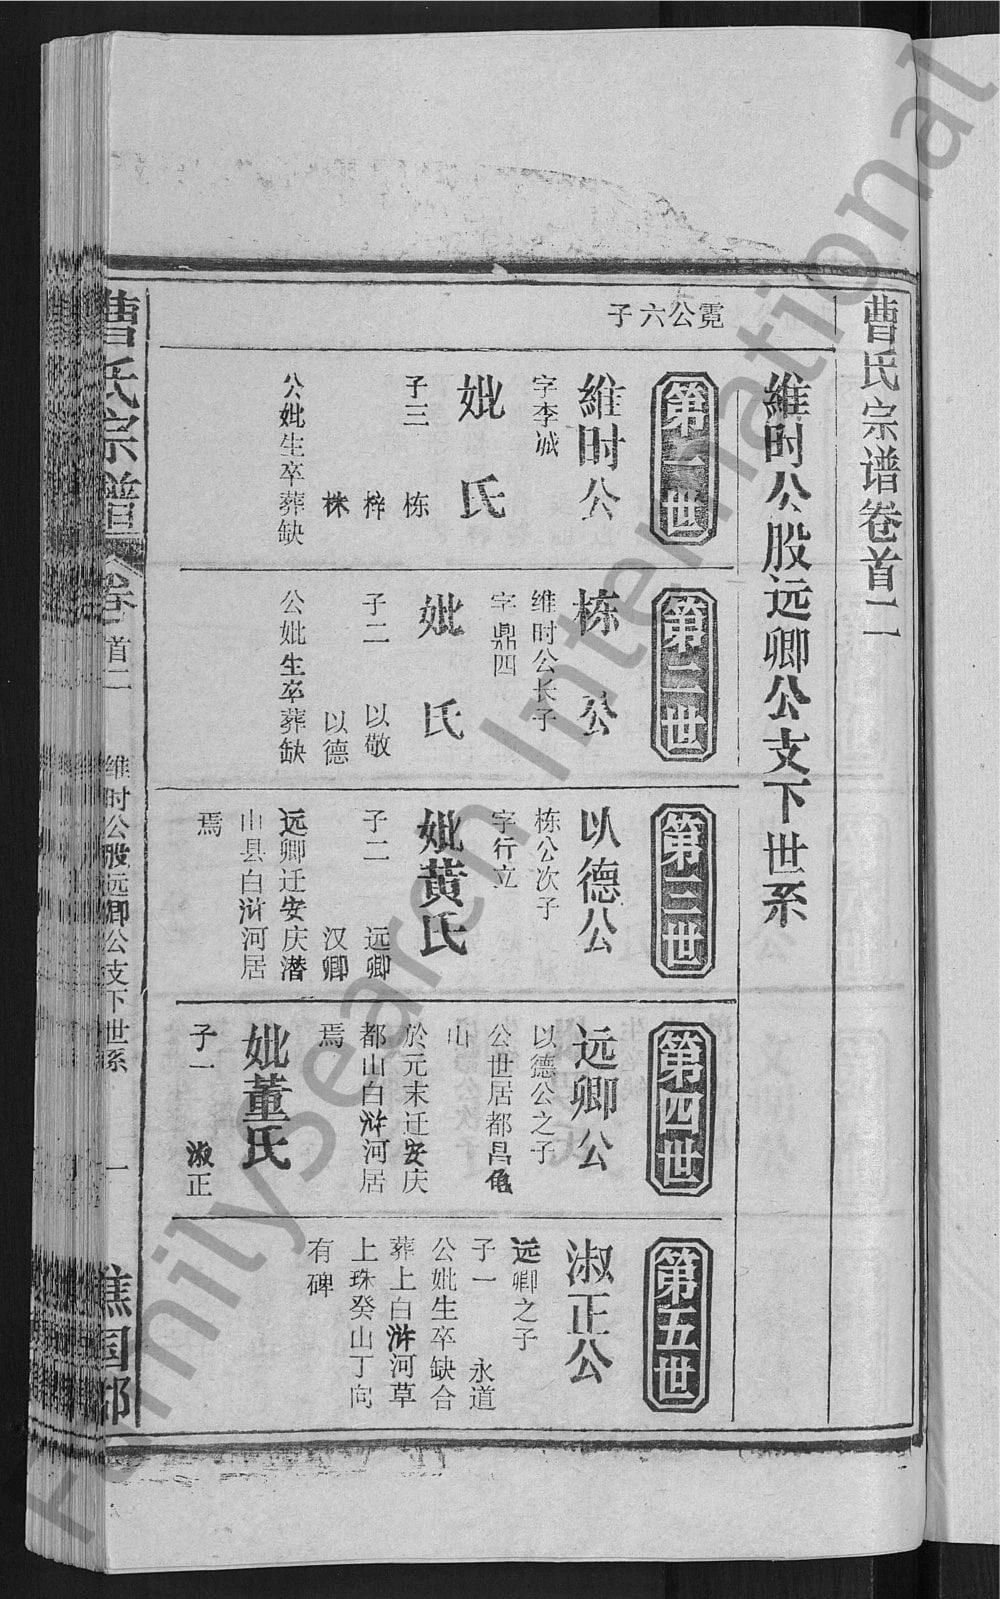 曹氏宗谱卷首二
維时公股远卿公支下世系
霓公六子
第一世
維时公
字李诚
妣 氏
子三 栋
梓
株
公妣生卒葬缺
第二世
栋公
维时公长子
字鼎四
妣 氏
子二 以敬
以德
公妣生卒葬缺
第三世
以德公
栋公次子
字行立
妣黄氏
子二 远卿
汉卿
远卿迁安庆潜
山县白浒河居
焉
第四世
远卿公
以德公之子
公世居都昌龟
山
於元末迁安庆
都山白浒河居
焉
妣董氏
子一 淑正
第五世
淑正公
远卿之子
子一 永道
公妣生卒缺合
葬上白浒河草
上珠癸山丁向
有碑
曹氏宗譜 卷首二 维时公股远卿公支下世系 一 谯国郡
FamilySearch International